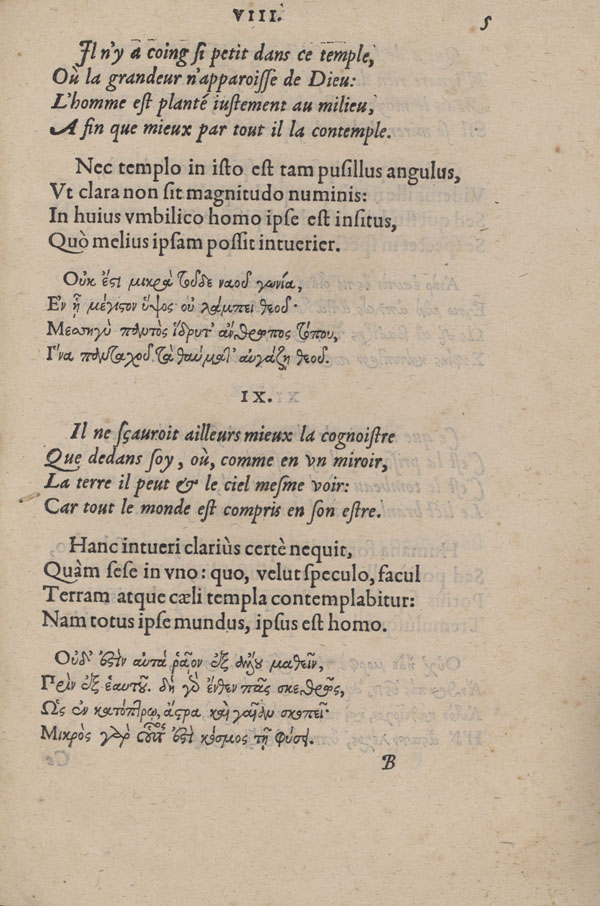 VIII.
5
Il n'y a coing si petit dans ce temple,
Où la grandeur n'apparoisse de Dieu:
L'homme est planté iustement au milieu,
A fin que mieux par tout il la contemple.
Nec templo in isto est tam pusillus angulus,
Vt clara non sit magnitudo numinis:
In huius vmbilico homo ipse est insitus,
Quò melius ipsam possit intuerier.
Οὐκ ἔστι μικρὰ τοῦδε ναοῦ γωνία,
Εν ᾗ μέγιστον ὕψος οὐ λάμπει θεοῦ·
Μεσηγὺ παντὸς ἵδρυτ' ἄνθρωπος τόπου,
Ἵνα πανταχοῦ τὰ θαύματ' αὐγάζῃ θεοῦ.
IX.
Il ne sçauroit ailleurs mieux la cognoistre
Que dedans soy, où, comme en vn miroir,
La terre il peut & le ciel mesme voir:
Car tout le monde est compris en son estre.
Hanc intueri clariùs certè nequit,
Quàm sese in vno: quo, velut speculo, facul
Terram atque cæli templa contemplabitur:
Nam totus ipse mundus, ipsus est homo.
Οὐδ' ἐστὶν αὐτὰ ῥᾷον ἐξ ἄλλου μαθεῖν,
Πρὶν ἐξ ἑαυτοῦ. δὴ γὸ ἔνθεν πᾶς
Ὡς ἐν κατόπτρῳ, ἄστρα καὶ γαῖαν σκοπεῖ·
Μικρὸς γὰρ ἐστὶ κόσμος τῇ φύσει.
B